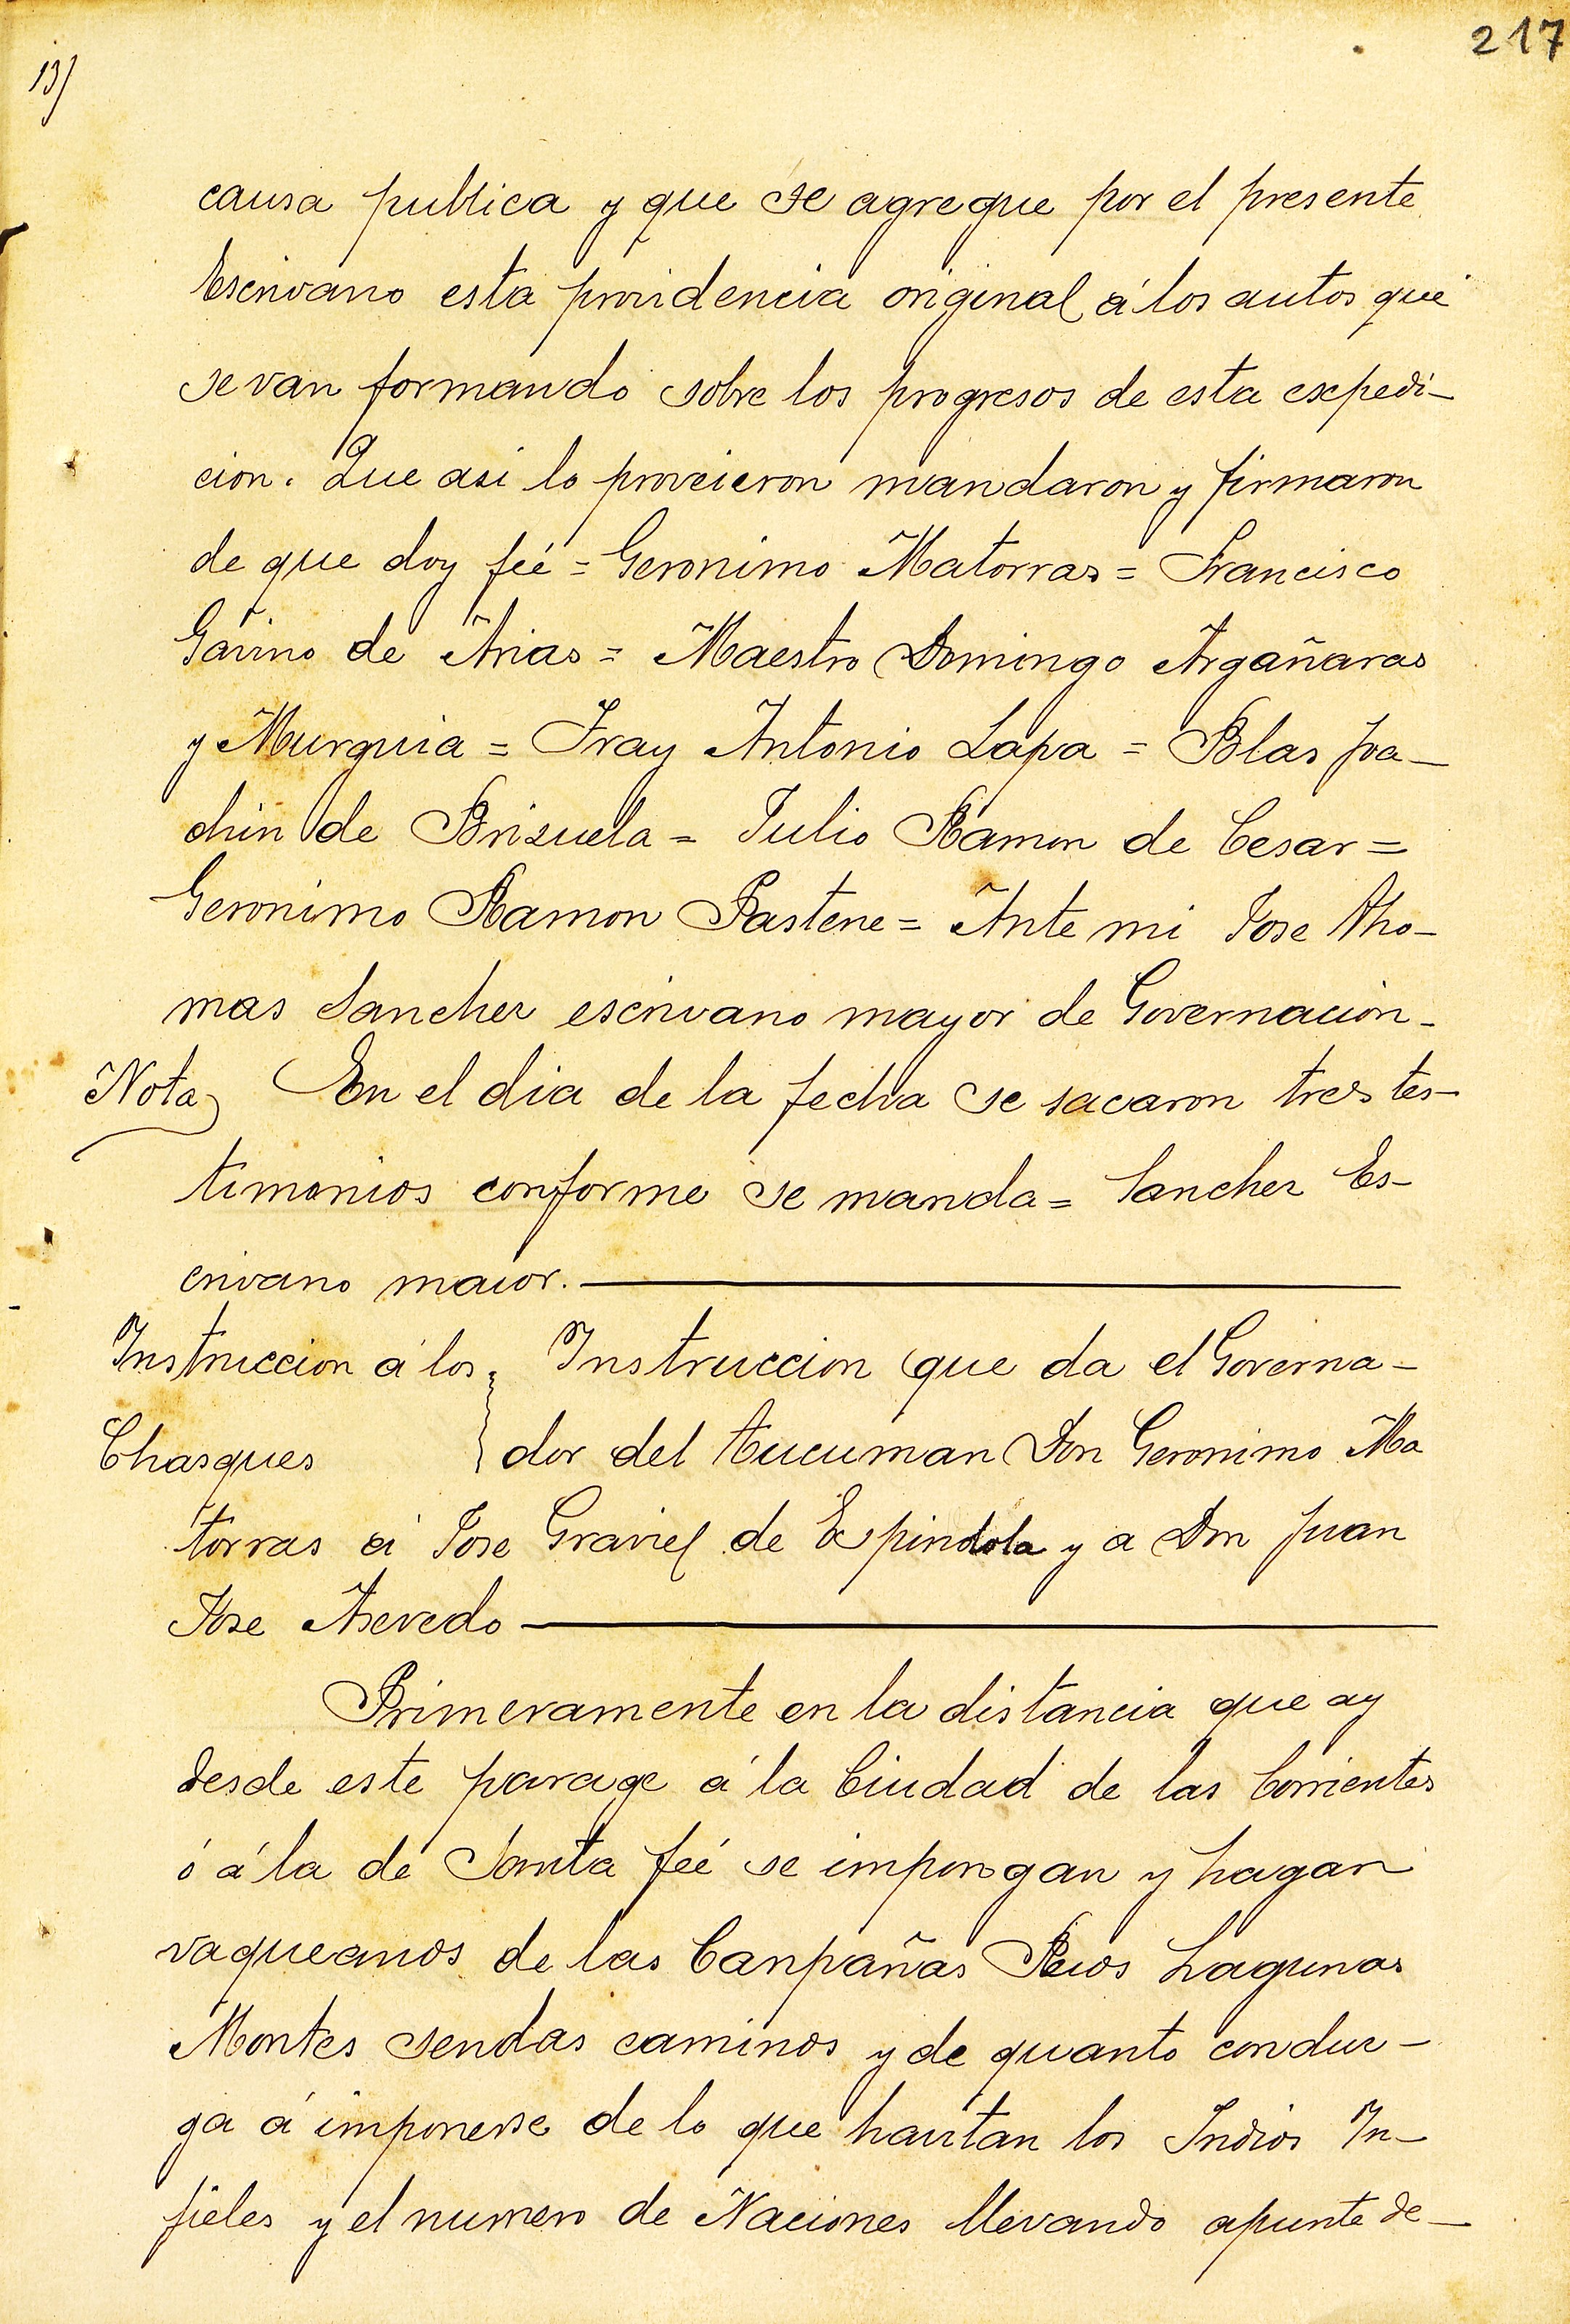 217
13)
causa publica y que se agregue por el presente
Escrivano esta providencia original á los autos que
se van formando sobre los progresos de esta expedi-
cion. Que asi lo proveieron mandaron y firmaron
de que doy feé = Geronimo Matorras = Francisco
Gavino de Arias = Maestro Domingo Argañaras
y Murguia = Fray Antonio Lapa = Blas Joa-
chin de Brizuela = Julio Ramon de Cesar =
Geronimo Ramon Pastene = Ante mi Jose Tho-
mas Sanchez escrivano mayor de Governacion -
Nota En el dia de la fecha se sacaron tres tes-
timonios conforme se manda = Sanchez Es-
crivano maior.
Instruccion á los Instruccion que da el Governa-
Chasques dor del Tucuman Don Geronimo Ma
torras á Jose Graviel de Espindola y a Don Juan
Jose Asevedo
Primeramente en la distancia que ay
desde este parage á la Ciudad de las Corrientes
ó á la de Santa feé se impongan y hagan
vaqueanos de las Canpañas Rios Lagunas
Montes sendas caminos y de quanto conduz-
ga á imponerse de lo que havitan los Indios In-
fieles y el numero de Naciones llevando apunte de-